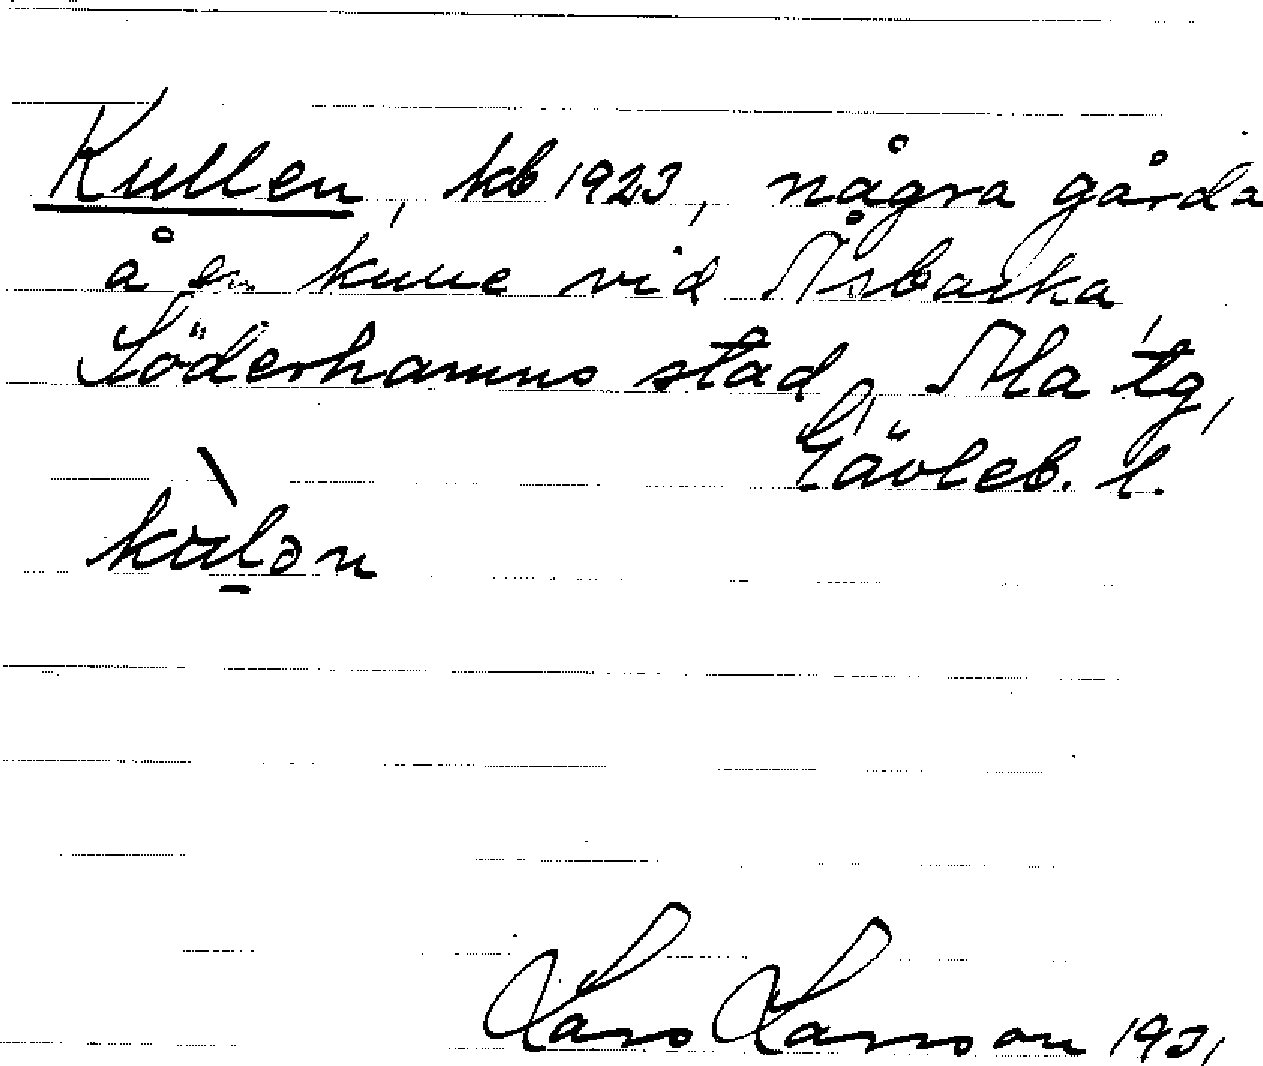 Kullen, kb 1923, några gårda
å en kulle vid Åsbacka,
Söderhamns stad, Ala tg,
Gävleb. l.
kulən
Lars Larsson 1931